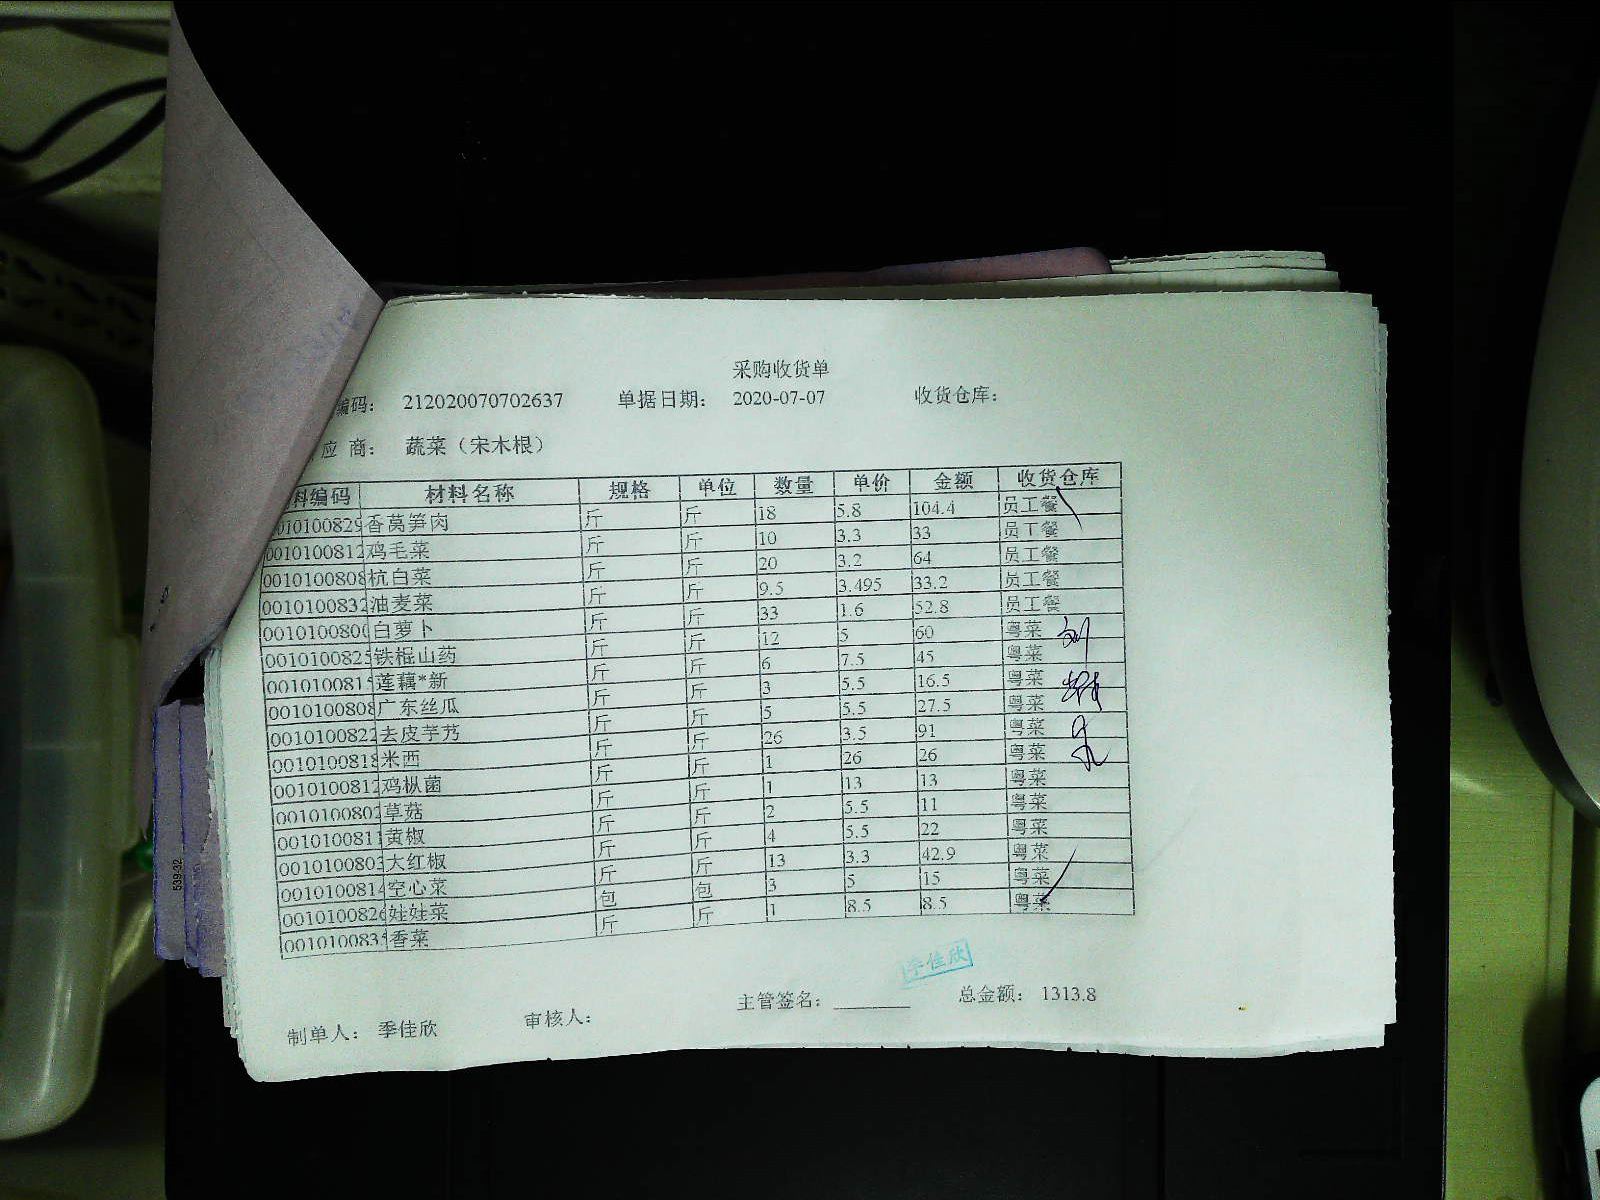 采购收货单
编码： 212020070702637 单据日期： 2020-07-07 收货仓库：
应 商： 蔬菜（宋木根）
料编码 材料名称 规格 单位 数量 单价 金额 收货仓库
010100829 香莴笋肉 斤 斤 18 5.8 104.4 员工餐
0010100812 鸡毛菜 斤 斤 10 3.3 33 员工餐
0010100808 杭白菜 斤 斤 20 3.2 64 员工餐
0010100832 油麦菜 斤 斤 9.5 3.495 33.2 员工餐
0010100800 白萝卜 斤 斤 33 1.6 52.8 员工餐
0010100825 铁棍山药 斤 斤 12 5 60 粤菜
0010100815 莲藕*新 斤 斤 6 7.5 45 粤菜
0010100808 广东丝瓜 斤 斤 3 5.5 16.5 粤菜
0010100822 去皮芋艿 斤 斤 5 5.5 27.5 粤菜
0010100818 米西 斤 斤 26 3.5 91 粤菜
0010100812 鸡枞菌 斤 斤 1 26 26 粤菜
0010100802 草菇 斤 斤 1 13 13 粤菜
0010100811 黄椒 斤 斤 2 5.5 11 粤菜
0010100803 大红椒 斤 斤 4 5.5 22 粤菜
0010100814 空心菜 斤 斤 13 3.3 42.9 粤菜
0010100826 娃娃菜 包 包 3 5 15 粤菜
0010100835 香菜 斤 斤 1 8.5 8.5 粤菜
季佳欣
制单人： 季佳欣 审核人： 主管签名： 总金额： 1313.8
539-32